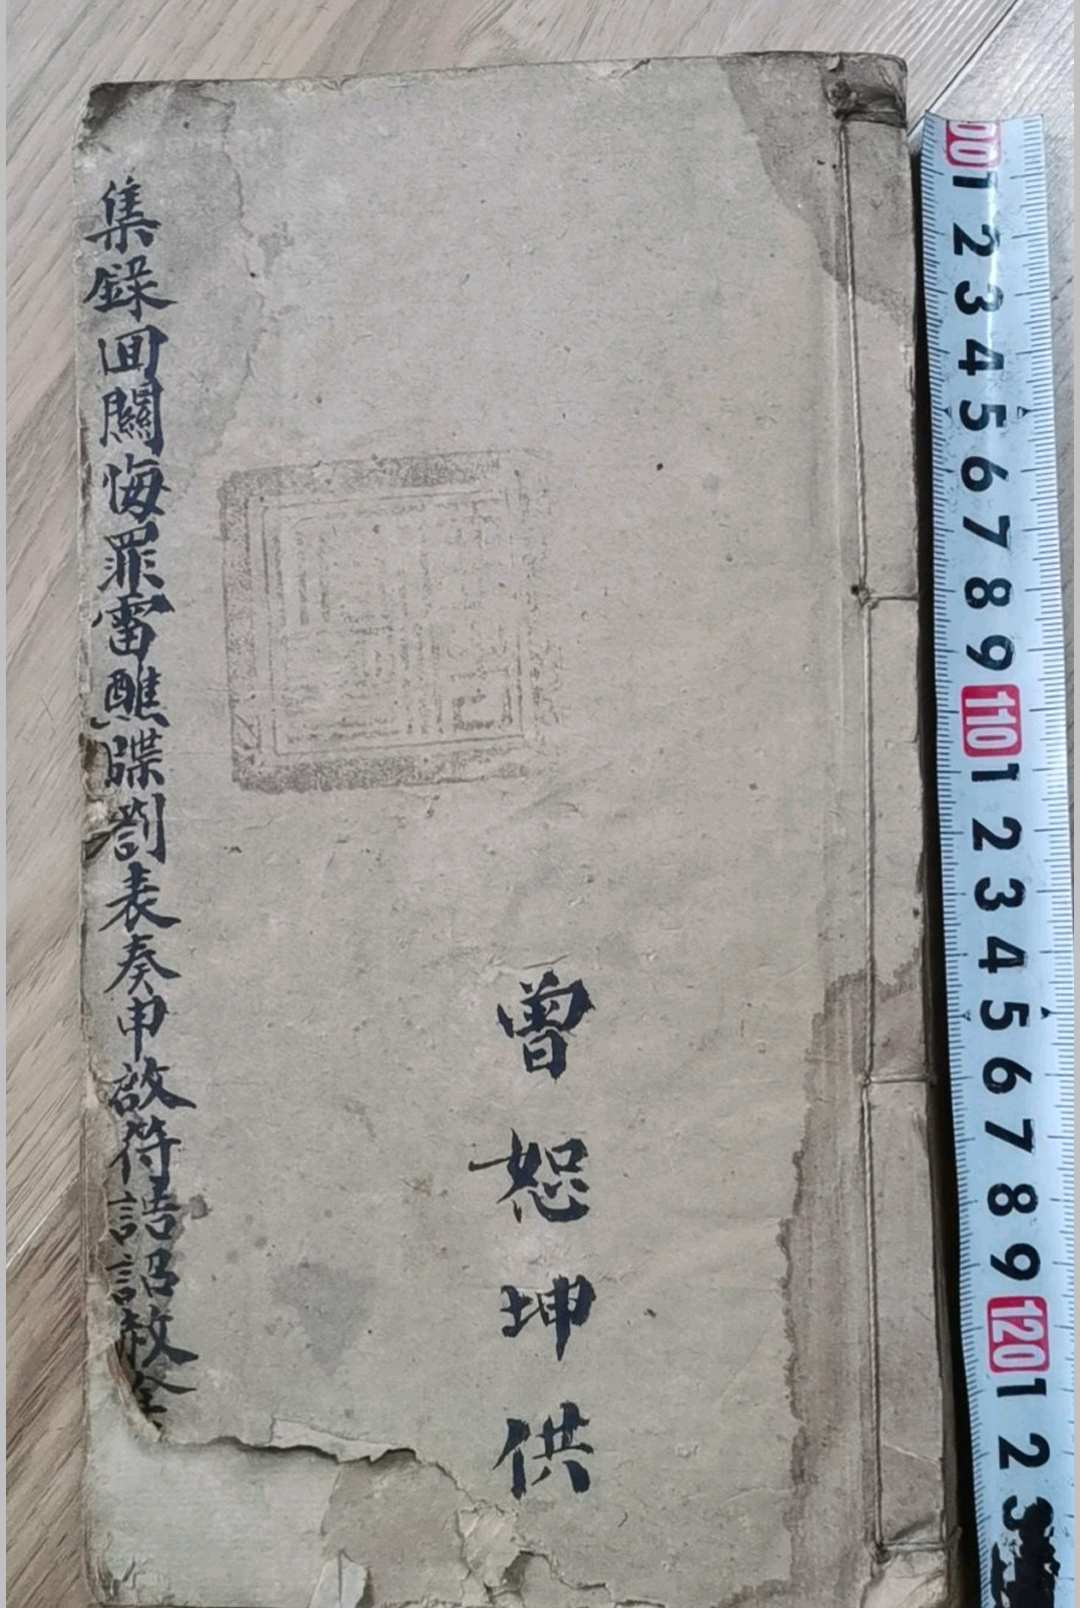 集錄回關悔罪雷醮牒劄表奏申啟符誥詔赦全
曾恕坤供
00 1 2 3 4 5 6 7 8 9 110 1 2 3 4 5 6 7 8 9 120 1 2 3